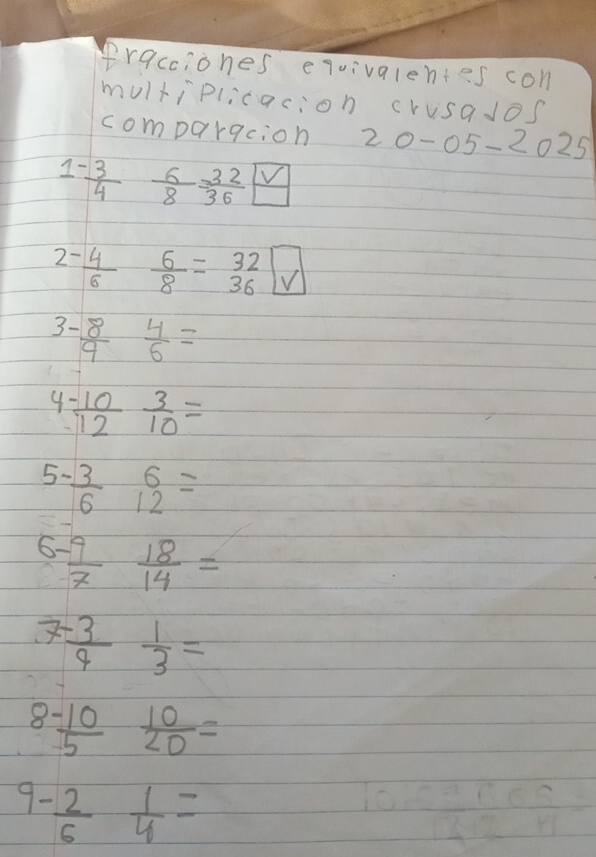 fracciones equivalentes con
multiplicacion crusados
comparacion 20-05-2025
1- 3/4 6/8 = 32/36 ✓
2- 4/6 6/8 = 32/36 ✓
3- 8/9 4/6 =
4- 10/12 3/10 =
5- 3/6 6/12 =
6- 9/7 18/14 =
7- 3/9 1/3 =
8- 10/5 10/20 =
9- 2/6 1/4 =